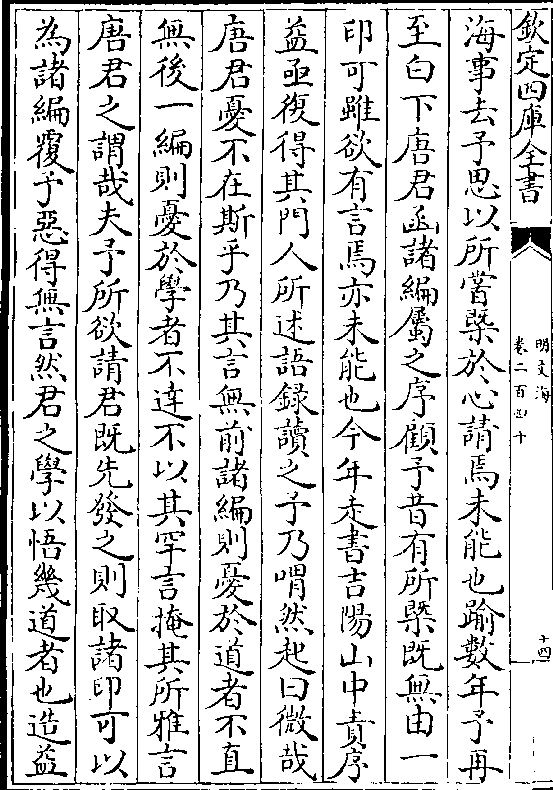 欽定四庫全書
明文海
卷二百四十
十四
海事去予思以所嘗槩於心請焉未能也踰數年予再
至白下唐君函諸編屬之序顧予昔有所槩既無由一
印可雖欲有言焉亦未能也今年走書吉陽山中責序
益亟復得其門人所述語錄讀之予乃喟然起曰微哉
唐君憂不在斯乎乃其言無前諸編則憂於道者不直
無後一編則憂於學者不逹不以其罕言掩其所雅言
唐君之謂哉夫予所欲請君既先發之則取諸印可以
為諸編覆予惡得無言然君之學以悟幾道者也造益